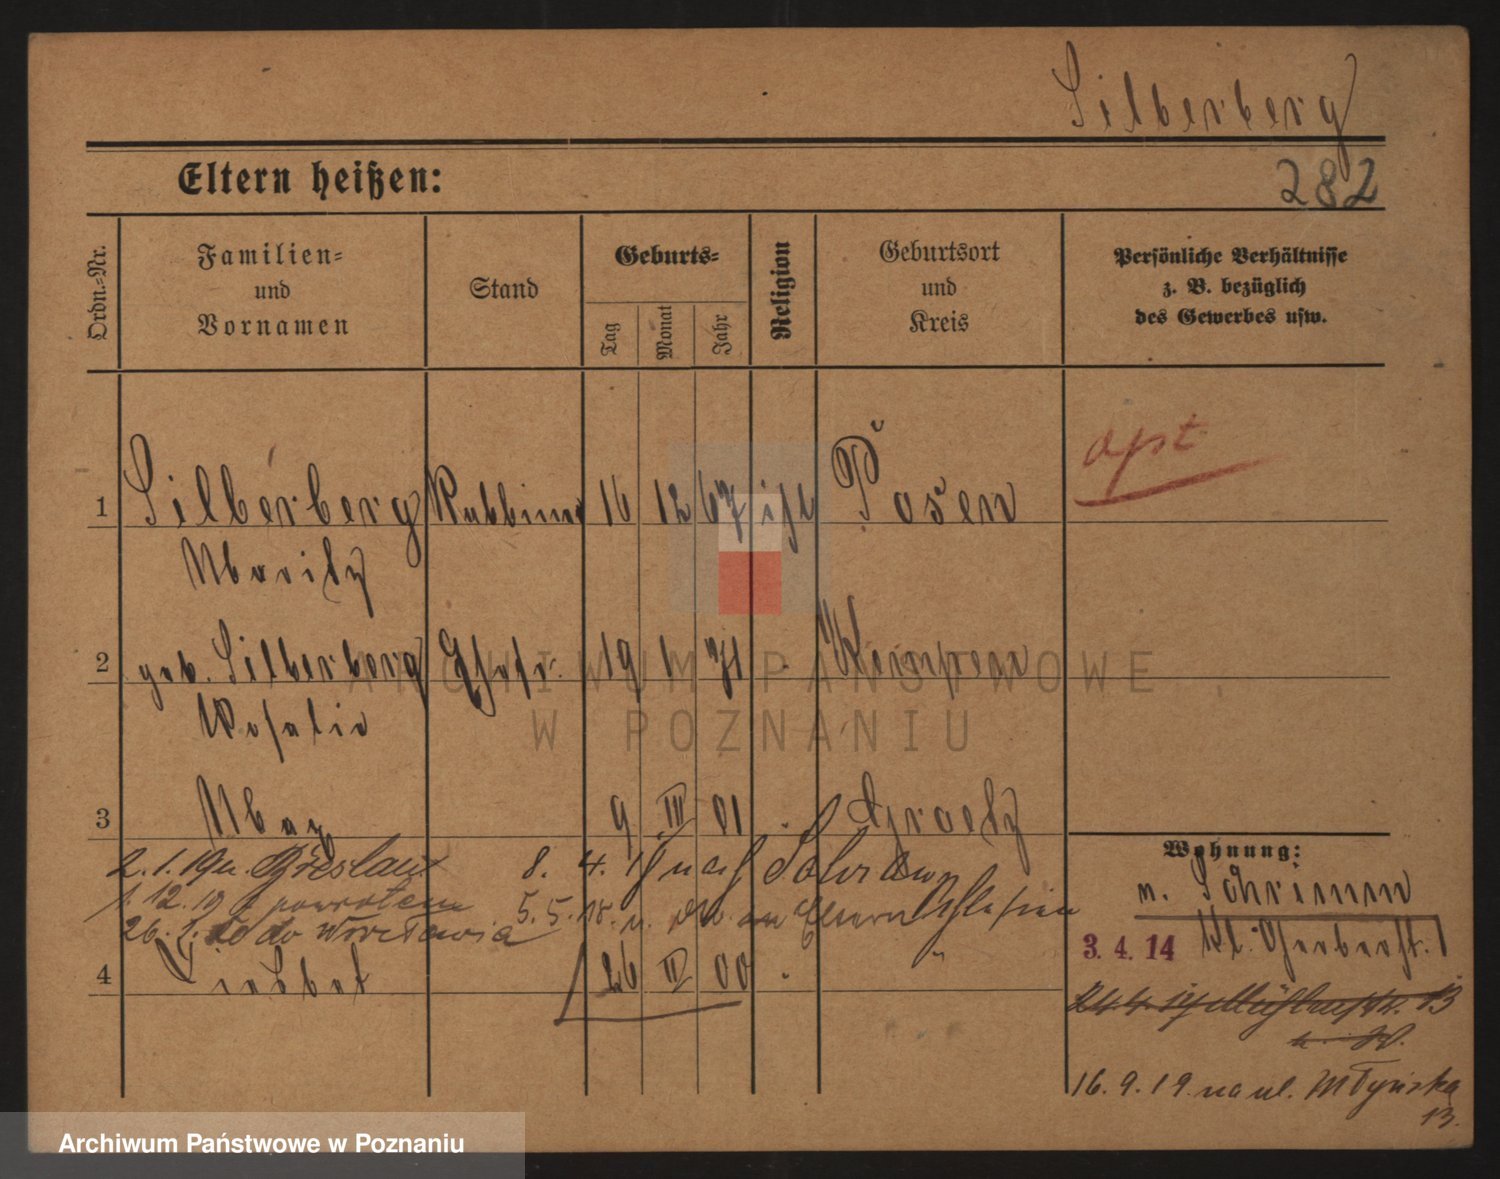 Silberberg
Eltern heißen:
282
Ordn.-Nr.
Familien-
und
Vornamen
Stand
Geburts-
Tag
Monat
Jahr
Religion
Geburtsort
und
Kreis
Persönliche Verhältnisse
z. B. bezüglich
des Gewerbes usw.
apt
1 Silberberg Rabbiner 16 12 67 isr Posen
Moritz
2 geb. Silberberg Ehefr. 19 1 71 Kempen
Rosalie
3 Max 9 III 01 Graetz
Wohnung:
2.1.19 n. Breslau 8. 4. 18 nach Sohrau
1.12.19 z powrotem 5.5.18. v. zu Eltern Schlesien
26.1.20 do Wrocławia
n. Schrimm
3. 4. 14 Kl. Gerberstr.
4 Liesbet 26 II 00 "
24.4.14 Mühlenstr. 13
16. 9. 19 na ul. Młyńska
13.
ARCHIWUM PAŃSTWOWE
W POZNANIU
Archiwum Państwowe w Poznaniu